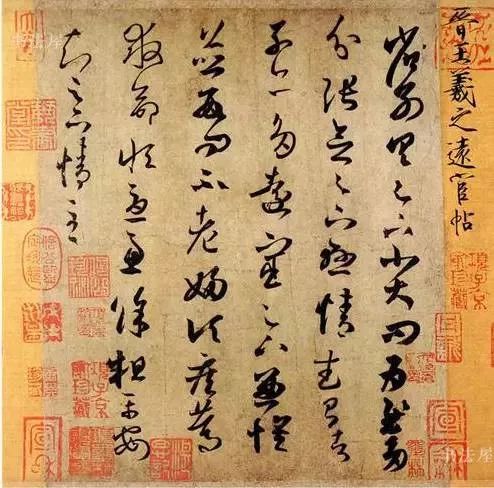 晉王羲之遠宦帖
省別具足下小大問為慰多
分張念足下懸情武昌諸
子亦多遠宦足下兼懷
並數問不老婦頃疾篤
救命恒憂慮餘粗平安
知足下情至
书法屋
书法屋